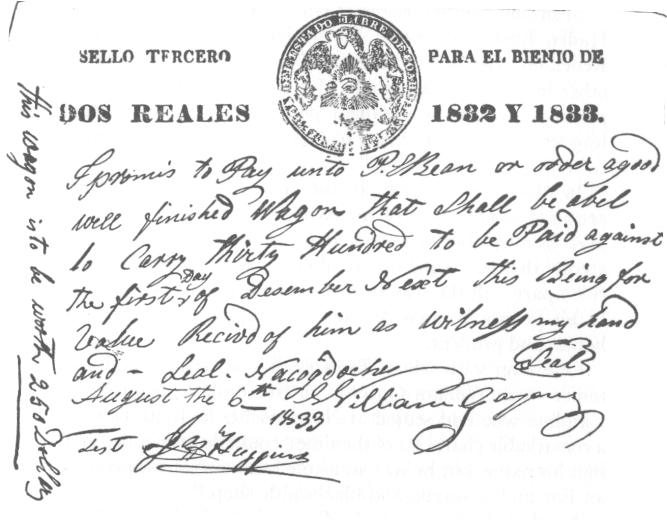 SELLO TERCERO
PARA EL BIENIO DE
ESTADO LIBRE DE
DOS REALES
1832 Y 1833.
I promis to Pay unto P. S Bean or order a good
well finished Wagon that Shall be abel
to Carry thirty Hundred to be Paid against
the first Day of Desember Next this Being for
Value Recivd of him as witness my hand
and - Seal - Nacogdoches Seal
August the 6th 1833 William
Test Jas Huggins
this wagon is to be worth 250 Dollars